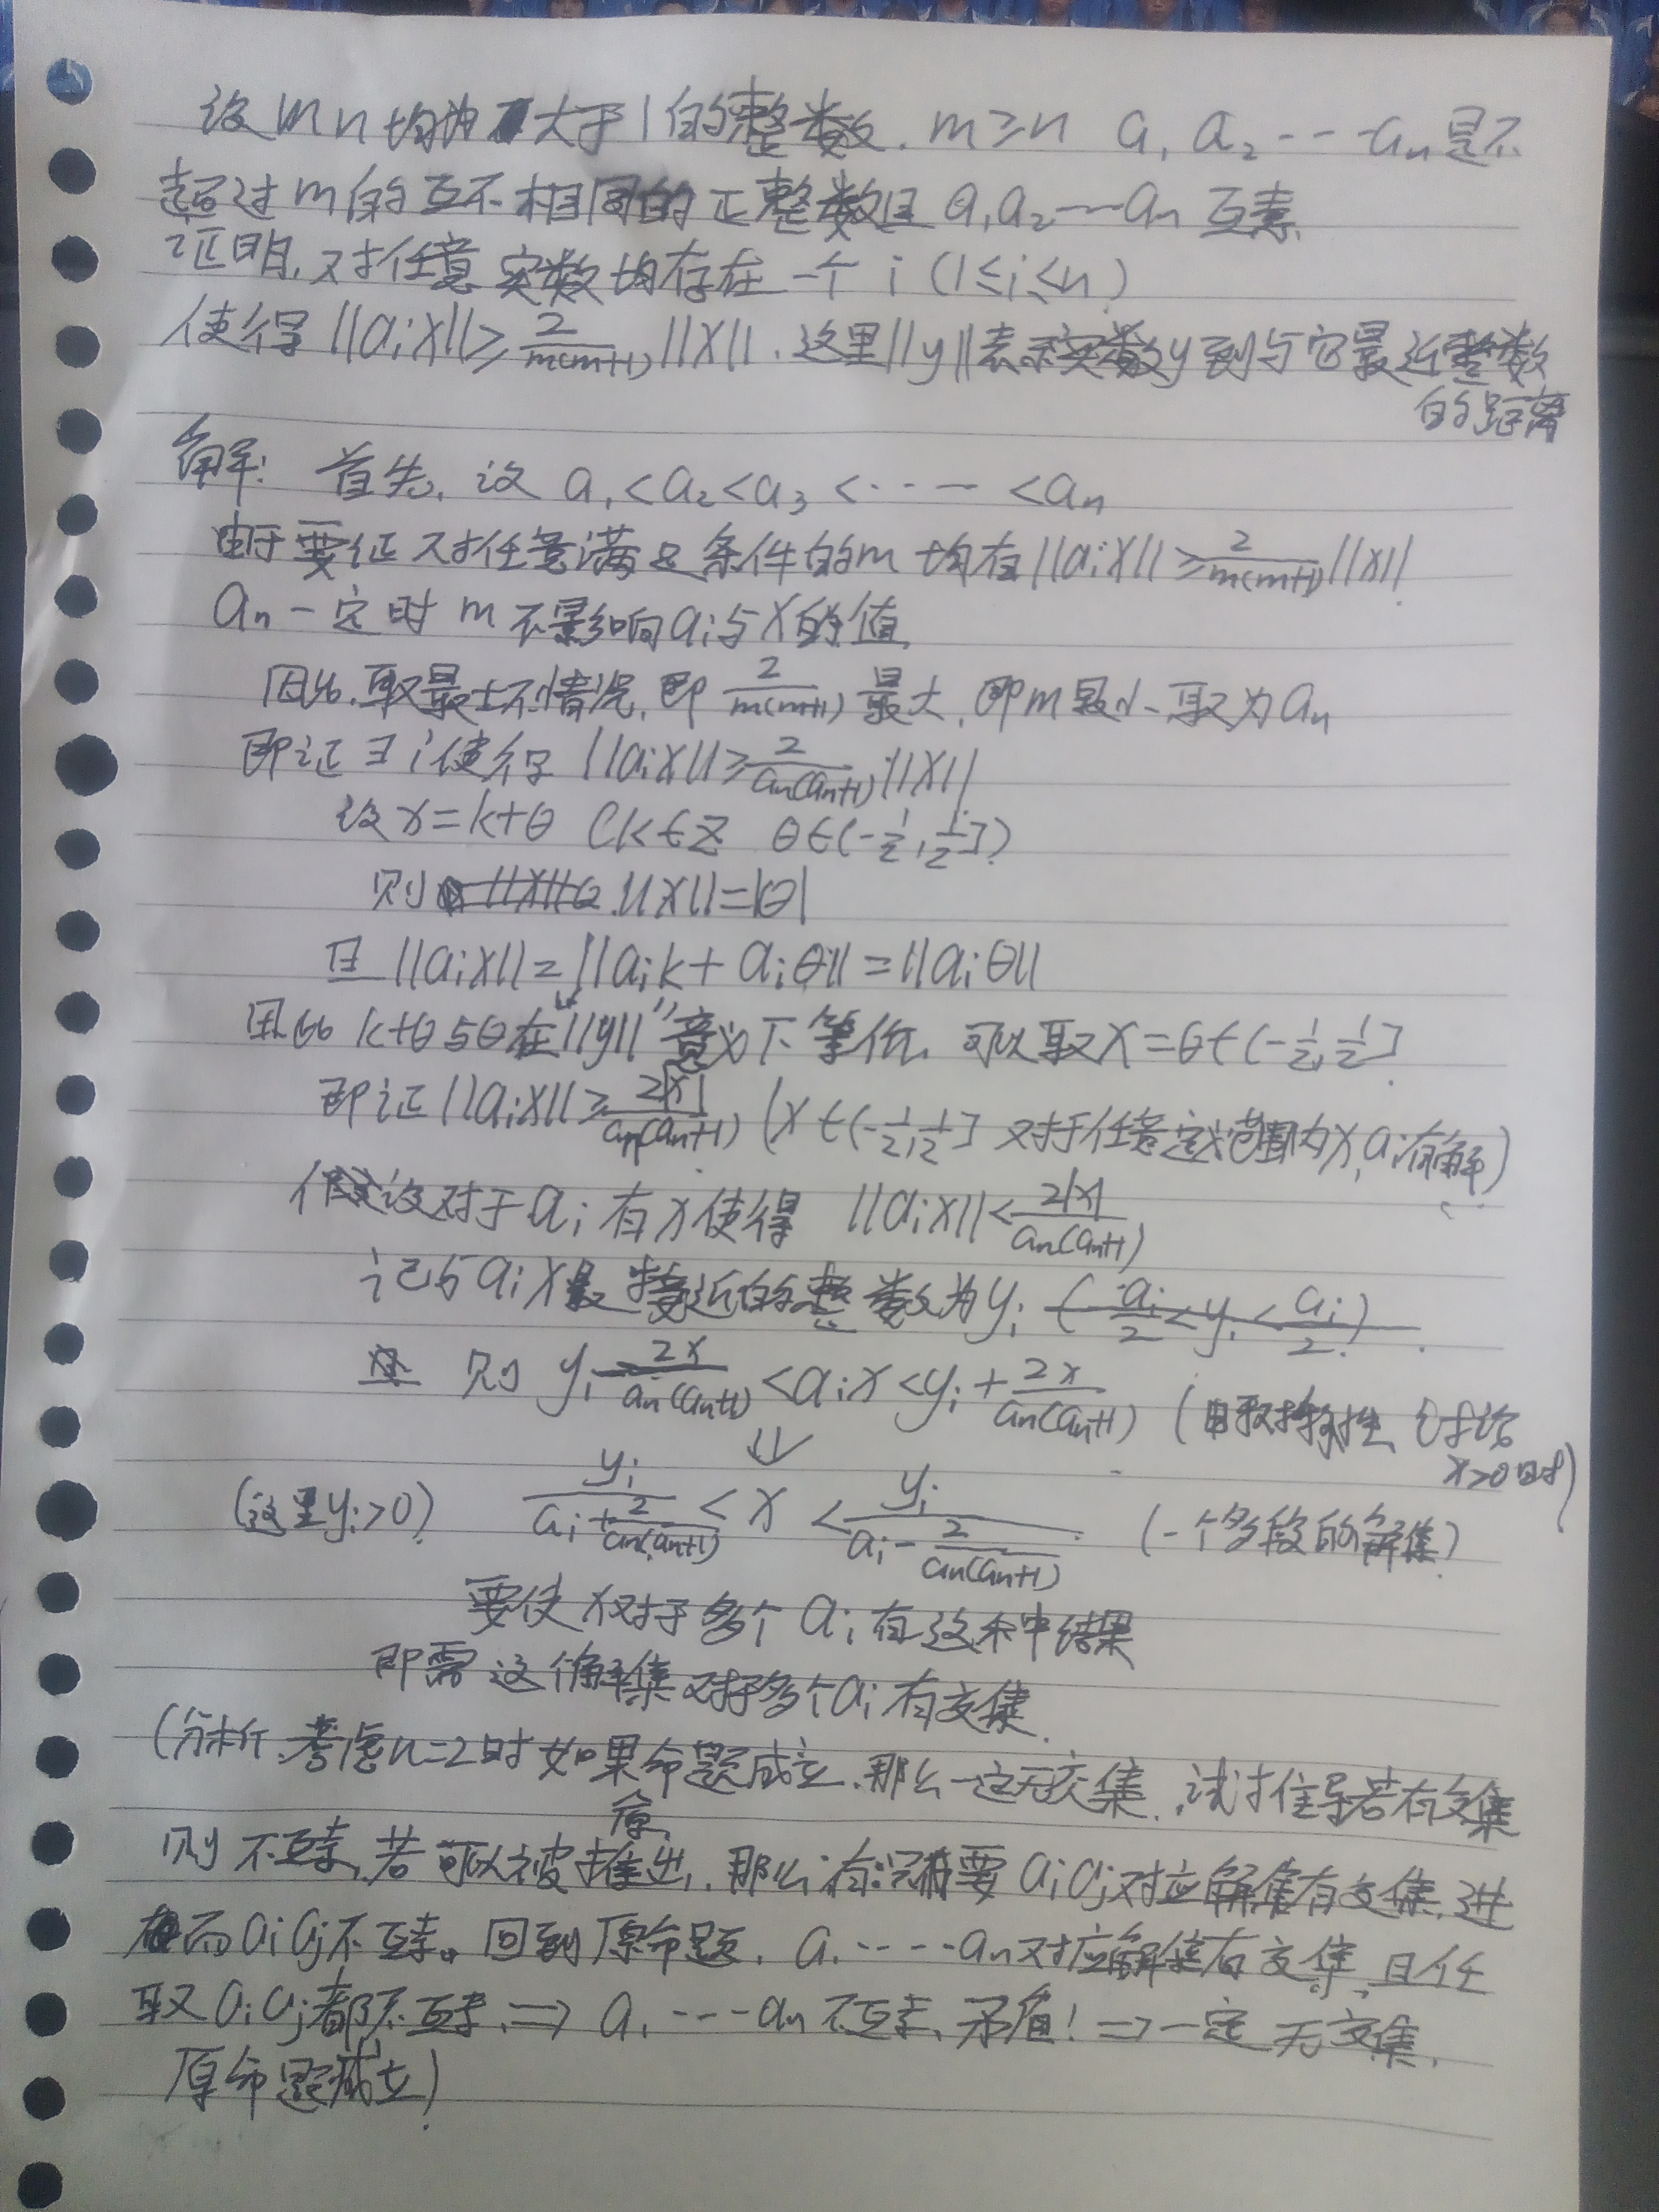 设 m n 均为大于1的整数. m≥n a₁ a₂ ---aₙ 是不
超过m的互不相同的正整数且 a₁a₂---aₙ 互素.
证明,对任意实数均存在一个 i (1≤i≤n)
使得 ||aᵢx||≥2/m(m+1) ||x||. 这里||y||表示实数y到与它最近整数
的距离
解: 首先, 设 a₁<a₂<a₃<----<aₙ
由于要证对任意满足条件的m 均有||aᵢx||≥2/m(m+1) ||x||.
aₙ一定时 m 不影响aᵢ与x的值,
因此.取最坏情况,即 2/m(m+1) 最大,即m最小 取为aₙ
即证∃i使得 ||aᵢx||≥2/aₙ(aₙ+1) ||x||
设x=k+θ (k∈Z θ∈(-1/2,1/2])
则 ||x||=|θ|
且 ||aᵢx||=||aᵢk+aᵢθ||=||aᵢθ||
因此 k+θ与θ在"||y||"意义下等价. 可以取x=θ∈(-1/2,1/2]
即证||aᵢx||≥2|x|/aₙ(aₙ+1) (x∈(-1/2,1/2] 对于任意定义范围内x,aᵢ有解)
假设对于aᵢ有x使得 ||aᵢx||<2|x|/aₙ(aₙ+1)
记与aᵢx最接近的整数为yᵢ
则 yᵢ-2x/aₙ(aₙ+1)<aᵢx<yᵢ+2x/aₙ(aₙ+1) (由对称性,讨论
x>0时)
⇓
(这里yᵢ>0) yᵢ/(aᵢ+2/aₙ(aₙ+1))<x<yᵢ/(aᵢ-2/aₙ(aₙ+1)) (一个多段的解集)
要使x对于多个aᵢ有这种结果
即需这个解集对于多个aᵢ有交集.
(分析.考虑n=2时如果命题成立.那么一定无交集. 试推导若有交集
则不互素,若原可以被推出,那么只需要aᵢaⱼ对应解集有交集,进
而aᵢaⱼ不互素。回到原命题. a₁----aₙ对应解集有交集,且任
取aᵢaⱼ都不互素.⇒ a₁---aₙ不互素,矛盾!⇒一定无交集.
原命题成立)